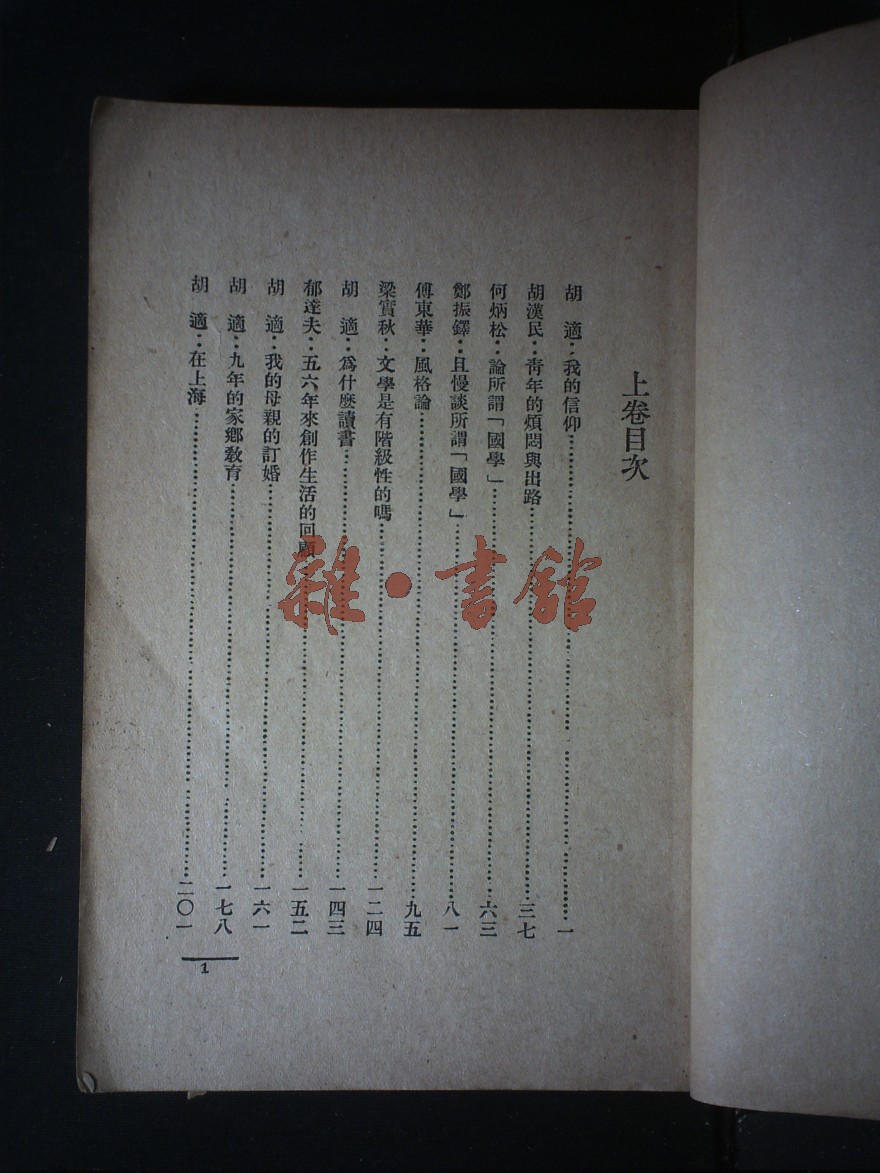 上卷目次
胡適：我的信仰……一
胡漢民：青年的煩悶與出路……三七
何炳松：論所謂「國學」……六三
鄭振鐸：且慢談所謂「國學」……八一
傅東華：風格論……九五
梁實秋：文學是有階級性的嗎……一二四
胡適：爲什麽讀書……一四三
郁達夫：五六年來創作生活的回顧……一五二
胡適：我的母親的訂婚……一六一
胡適：九年的家鄉敎育……一七八
胡適：在上海……二〇一
1
雜·書館